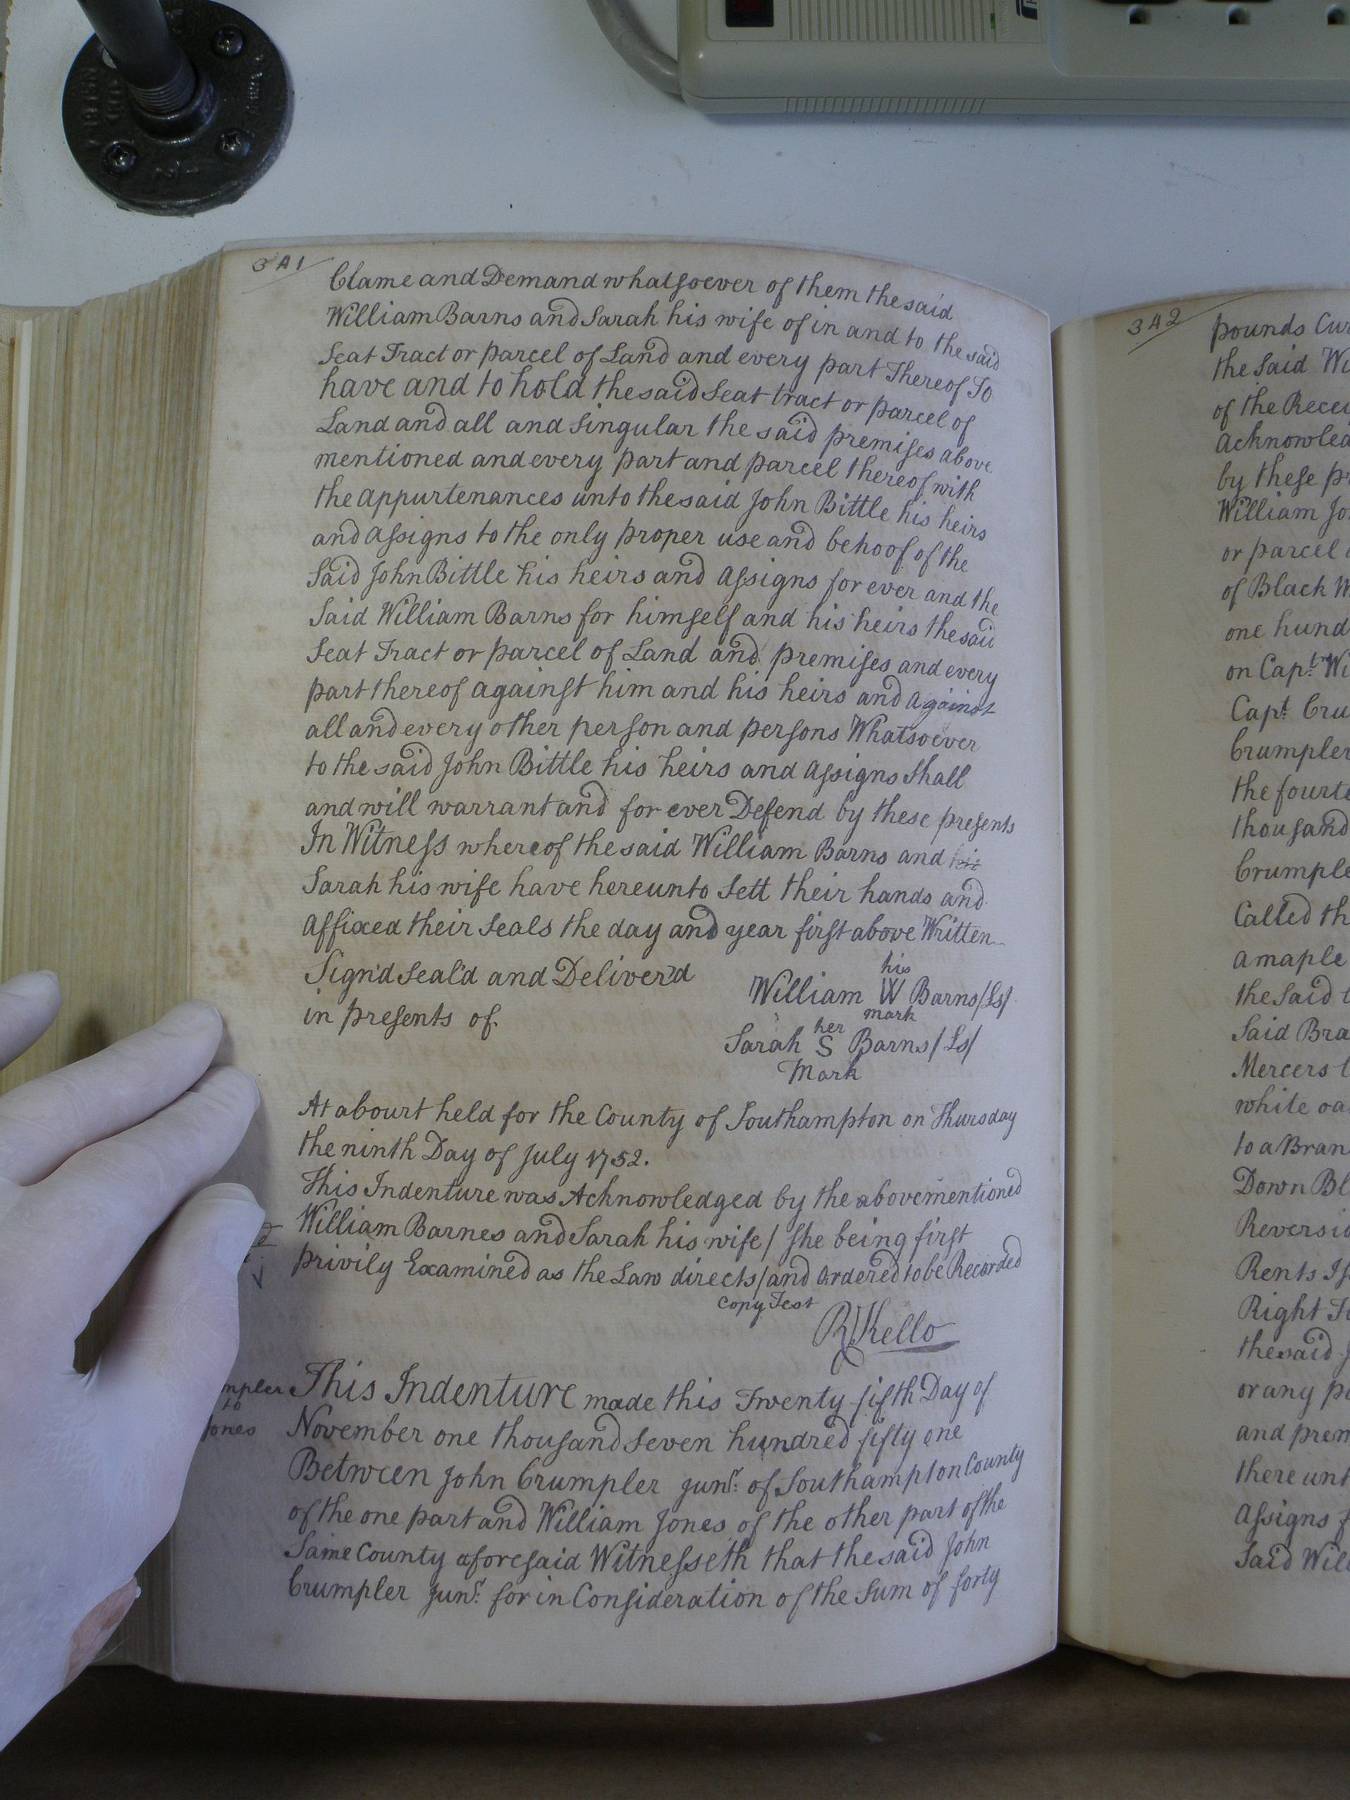 341
Clame and Demand whatsoever of them the said
William Barns and Sarah his wife of in and to the said
Seat Tract or parcel of Land and every part Thereof To
have and to hold the said Seat tract or parcel of
Land and all and Singular the said premises above
mentioned and every part and parcel thereof with
the appurtenances unto the said John Bittle his heirs
and assigns to the only proper use and behoof of the
Said John Bittle his heirs and assigns for ever and the
Said William Barns for himself and his heirs the said
Seat Tract or parcel of Land and premises and every
part thereof against him and his heirs and against
all and every other person and persons Whatsoever
to the said John Bittle his heirs and assigns Shall
and will warrant and for ever Defend by these presents
In Witness whereof the said William Barns and his
Sarah his wife have hereunto Sett their hands and
affixed their Seals the day and year first above Written
Sign'd Seal'd and Deliver'd
in presents of
his
William W Barns/Ls/
mark
her
Sarah S Barns/Ls/
Mark
At a Court held for the County of Southampton on Thursday
the ninth Day of July 1752.
This Indenture was Acknowledged by the abovementioned
William Barnes and Sarah his wife / She being first
privily Examined as the Law directs/and ordered to be Recorded
Copy Test
R Kello
mpler
to
Jones
This Indenture made this Twenty fifth Day of
November one thousand Seven hundred fifty one
Between John Crumpler Junr. of Southampton County
of the one part and William Jones of the other part of the
Same County aforesaid Witnesseth that the said John
Crumpler Junr. for in Consideration of the Sum of forty
342
pounds Cur
the Said Wi
of the Recei
acknowled
by these pr
William Jo
or parcel
of Black W
one hund
on Capt. Wi
Capt. Cru
Crumpler
the fourte
thousand
Crumple
Called th
a maple
the Said
Said Bra
Mercers
white oa
to a Bran
Down Bl
Reversio
Rents Is
Right Ti
the said J
or any pa
and prem
there unt
assigns f
Said Will